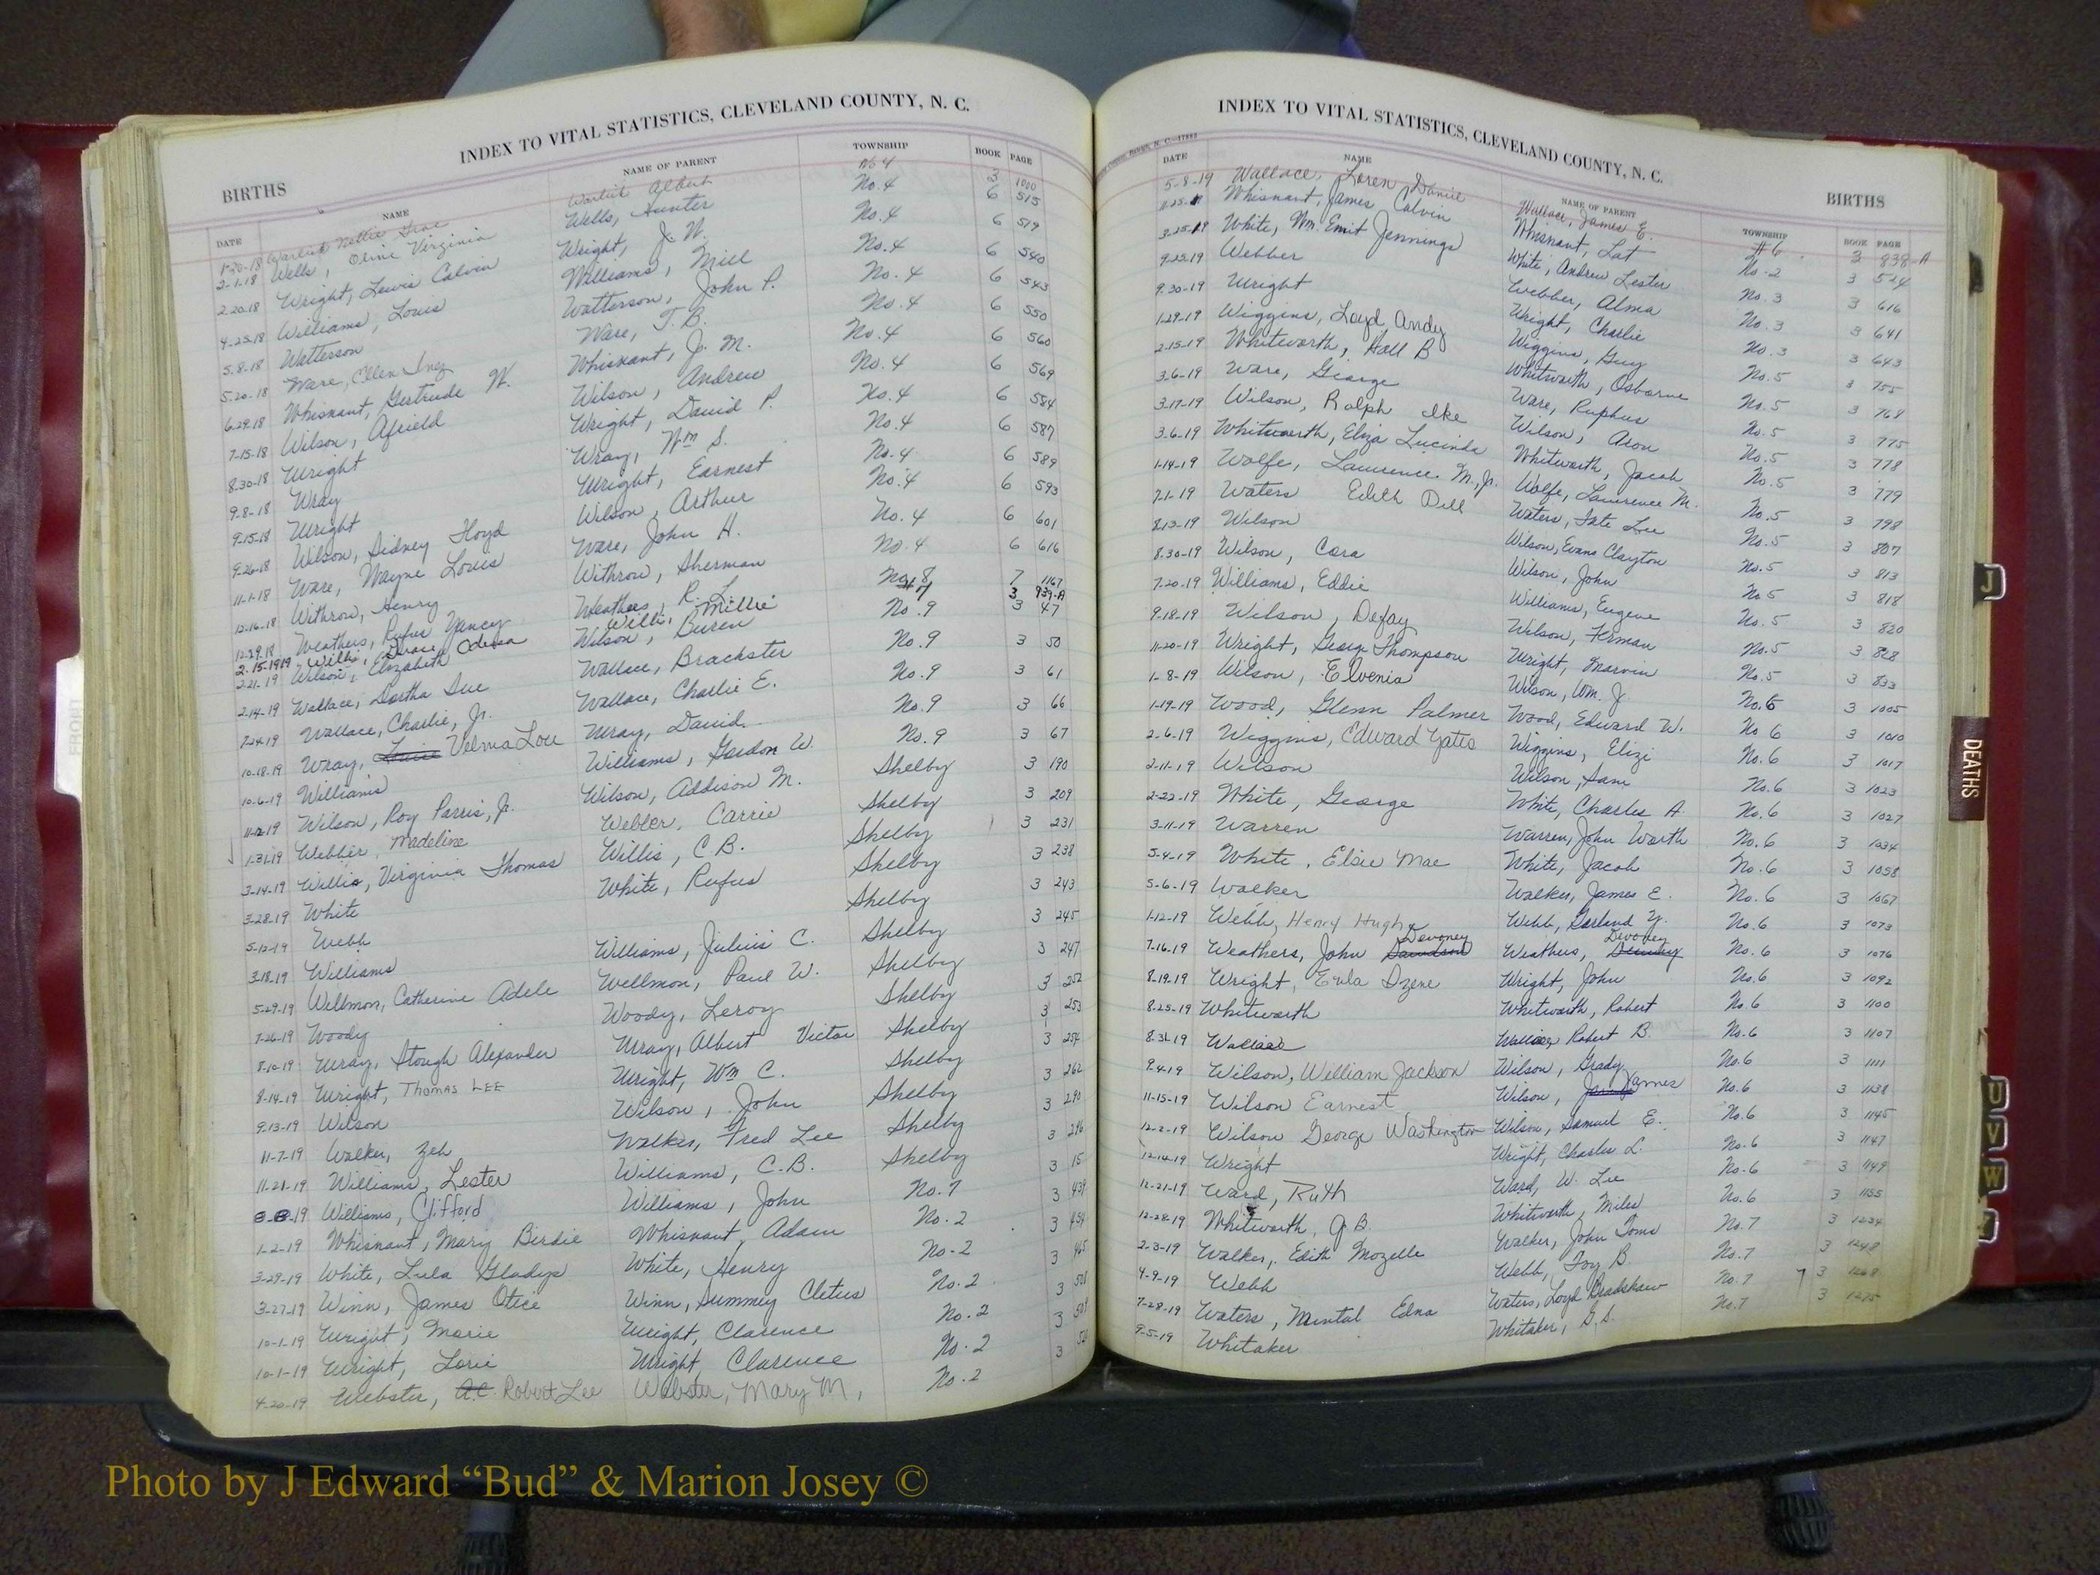 INDEX TO VITAL STATISTICS, CLEVELAND COUNTY, N. C.
BIRTHS
DATE NAME NAME OF PARENT TOWNSHIP BOOK PAGE
1-20-18 Warlick Nettie Grae Warlick Albert No 4 3 1000
2-1-18 Wells, Olini Virginia Wells, Hunter No. 4 6 515
2-20-18 Wright, Lewis Calvin Wright, J. W. No. 4 6 519
4-25-18 Williams, Louis Williams, Miel No. 4 6 540
5-8-18 Watterson Watterson, John P. No. 4 6 543
5-20-18 Ware, Ellen Inez Ware, T. B. No. 4 6 550
6-29-18 Whisnant, Gertrude W. Whisnant, J. M. No. 4 6 560
7-15-18 Wilson, Afrield Wilson, Andrew No. 4 6 569
8-30-18 Wright Wright, David P. No. 4 6 584
9-8-18 Wray Wray, Wm S. No. 4 6 587
9-15-18 Wright Wright, Earnest No. 4 6 589
9-26-18 Wilson, Sidney Floyd Wilson, Arthur No. 4 6 593
11-1-18 Ware, Wayne Louis Ware, John H. No. 4 6 601
12-16-18 Withrow, Henry Withrow, Sherman No. 4 6 616
12-29-18 Weathers, Rufus Yancy Weathers, R. L. No. 8 7 1167
2-15-1919 Willis, Willis, Millie 3 939-A
2-21-19 Wilson, Elizabeth Odessa Wilson, Buren No. 9 3 47
2-14-19 Wallace, Dortha Sue Wallace, Brackster No. 9 3 50
7-24-19 Wallace, Charlie, Jr. Wallace, Charlie E. No. 9 3 61
10-18-19 Wray, Velma Lou Wray, David No. 9 3 66
10-6-19 Williams Williams, Gordon W. No. 9 3 67
11-12-19 Wilson, Roy Parris, Jr. Wilson, Addison M. Shelby 3 190
1-31-19 Webber, Madeline Webber, Carrie Shelby 3 209
3-14-19 Willis, Virginia Thomas Willis, C. B. Shelby 3 231
3-28-19 White White, Rufus Shelby 3 238
5-12-19 Webb Shelby 3 243
3-18-19 Williams Williams, Julius C. Shelby 3 245
5-29-19 Wellmon, Catherine Adele Wellmon, Paul W. Shelby 3 247
7-26-19 Woody Woody, Leroy Shelby 3 252
8-10-19 Wray, Stough Alexander Wray, Albert Victor Shelby 3 253
8-14-19 Wright, Thomas LEE Wright, Wm C. Shelby 3 254
9-13-19 Wilson Wilson, John Shelby 3 262
11-7-19 Walker, Zeb Walker, Fred Lee Shelby 3 290
11-21-19 Williams, Lester Williams, C. B. Shelby 3 296
8-8-19 Williams, Clifford Williams, John No. 7 3 15
1-2-19 Whisnant, Mary Birdie Whisnant, Adam No. 2 3 439
3-29-19 White, Lula Gladys White, Henry No. 2 3 454
3-27-19 Winn, James Otice Winn, Summey Cletus No. 2 3 465
10-1-19 Wright, Marie Wright, Clarence No. 2 3 508
10-1-19 Wright, Lorie Wright, Clarence No. 2 3 508
4-20-19 Webster, A.C. Robert Lee Webster, Mary M. No. 2 3
INDEX TO VITAL STATISTICS, CLEVELAND COUNTY, N. C.
BIRTHS
DATE NAME NAME OF PARENT TOWNSHIP BOOK PAGE
5-8-19 Wallace, Loren Daniel Wallace, James E. #6 3 838-A
11-25-19 Whisnant, James Calvin Whisnant, Lat No. 2 3 524
3-25-19 White, Wm. Emit Jennings White, Andrew Lester No. 3 3 616
9-25-19 Webber Webber, Alma No. 3 3 641
9-30-19 Wright Wright, Charlie No. 3 3 643
1-29-19 Wiggins, Loyd Andy Wiggins, Guy No. 5 3 755
2-15-19 Whitworth, Hall B Whitworth, Osborne No. 5 3 768
3-6-19 Ware, George Ware, Ruphus No. 5 3 775
3-17-19 Wilson, Ralph Ike Wilson, Aron No. 5 3 778
3-6-19 Whitworth, Eliza Lucinda Whitworth, Jacob No. 5 3 779
1-14-19 Wolfe, Lawrence M., Jr. Wolfe, Lawrence M. No. 5 3 798
7-1-19 Waters Edith Dell Waters, Tate Lee No. 5 3 807
8-13-19 Wilson Wilson, Evans Clayton No. 5 3 813
8-30-19 Wilson, Cora Wilson, John No. 5 3 818
7-20-19 Williams, Eddie Williams, Eugene No. 5 3 820
9-18-19 Wilson, Defay Wilson, Firman No. 5 3 828
11-20-19 Wright, George Thompson Wright, Marvin No. 5 3 833
1-8-19 Wilson, Elvenia Wilson, Wm. J. No. 6 3 1005
1-19-19 Wood, Glenn Palmer Wood, Edward W. No 6 3 1010
2-6-19 Wiggins, Edward Yates Wiggins, Elizi No. 6 3 1017
2-11-19 Wilson Wilson, Sam No. 6 3 1023
2-22-19 White, George White, Charles A. No. 6 3 1027
3-11-19 Warren Warren, John Worth No. 6 3 1034
5-4-19 White, Elsie Mae White, Jacob No. 6 3 1058
5-6-19 Walker Walker, James E. No. 6 3 1067
1-12-19 Webb, Henry Hugh Webb, Garland Y. No. 6 3 1073
7-16-19 Weathers, John Devoney Weathers, Devoney No. 6 3 1076
8-19-19 Wright, Eula Izene Wright, John No. 6 3 1092
8-25-19 Whitworth Whitworth, Robert No. 6 3 1100
8-31-19 Wallace Wallace, Robert B. No. 6 3 1107
9-4-19 Wilson, William Jackson Wilson, Grady No. 6 3 1111
11-15-19 Wilson Earnest Wilson, James No. 6 3 1138
12-2-19 Wilson George Washington Wilson, Samuel E. No. 6 3 1145
12-14-19 Wright Wright, Charles L. No. 6 3 1147
12-21-19 Ward, Ruth Ward, W. Lee No. 6 3 1149
12-28-19 Whitworth, J. B. Whitworth, Miles No. 6 3 1155
2-3-19 Walker, Edith Mozelle Walker, John Toms No. 7 3 1234
4-9-19 Webb Webb, Foy B. No. 7 3 1248
7-28-19 Waters, Mintal Edna Waters, Loyd Bradshaw No. 7 3 1268
9-5-19 Whitaker Whitaker, S. S. No. 7 3 1275
J
DEATHS
U
V
W
Photo by J Edward “Bud” & Marion Josey ©